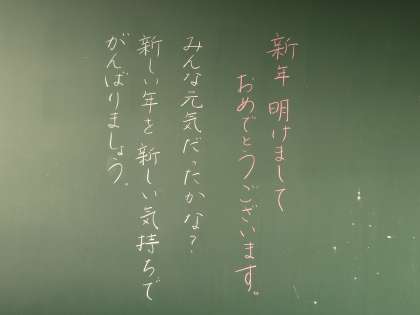 新年 明けまして
おめでとうございます。
みんな元気だったかな?
新しい年を 新しい気持ちで
がんばりましょう。